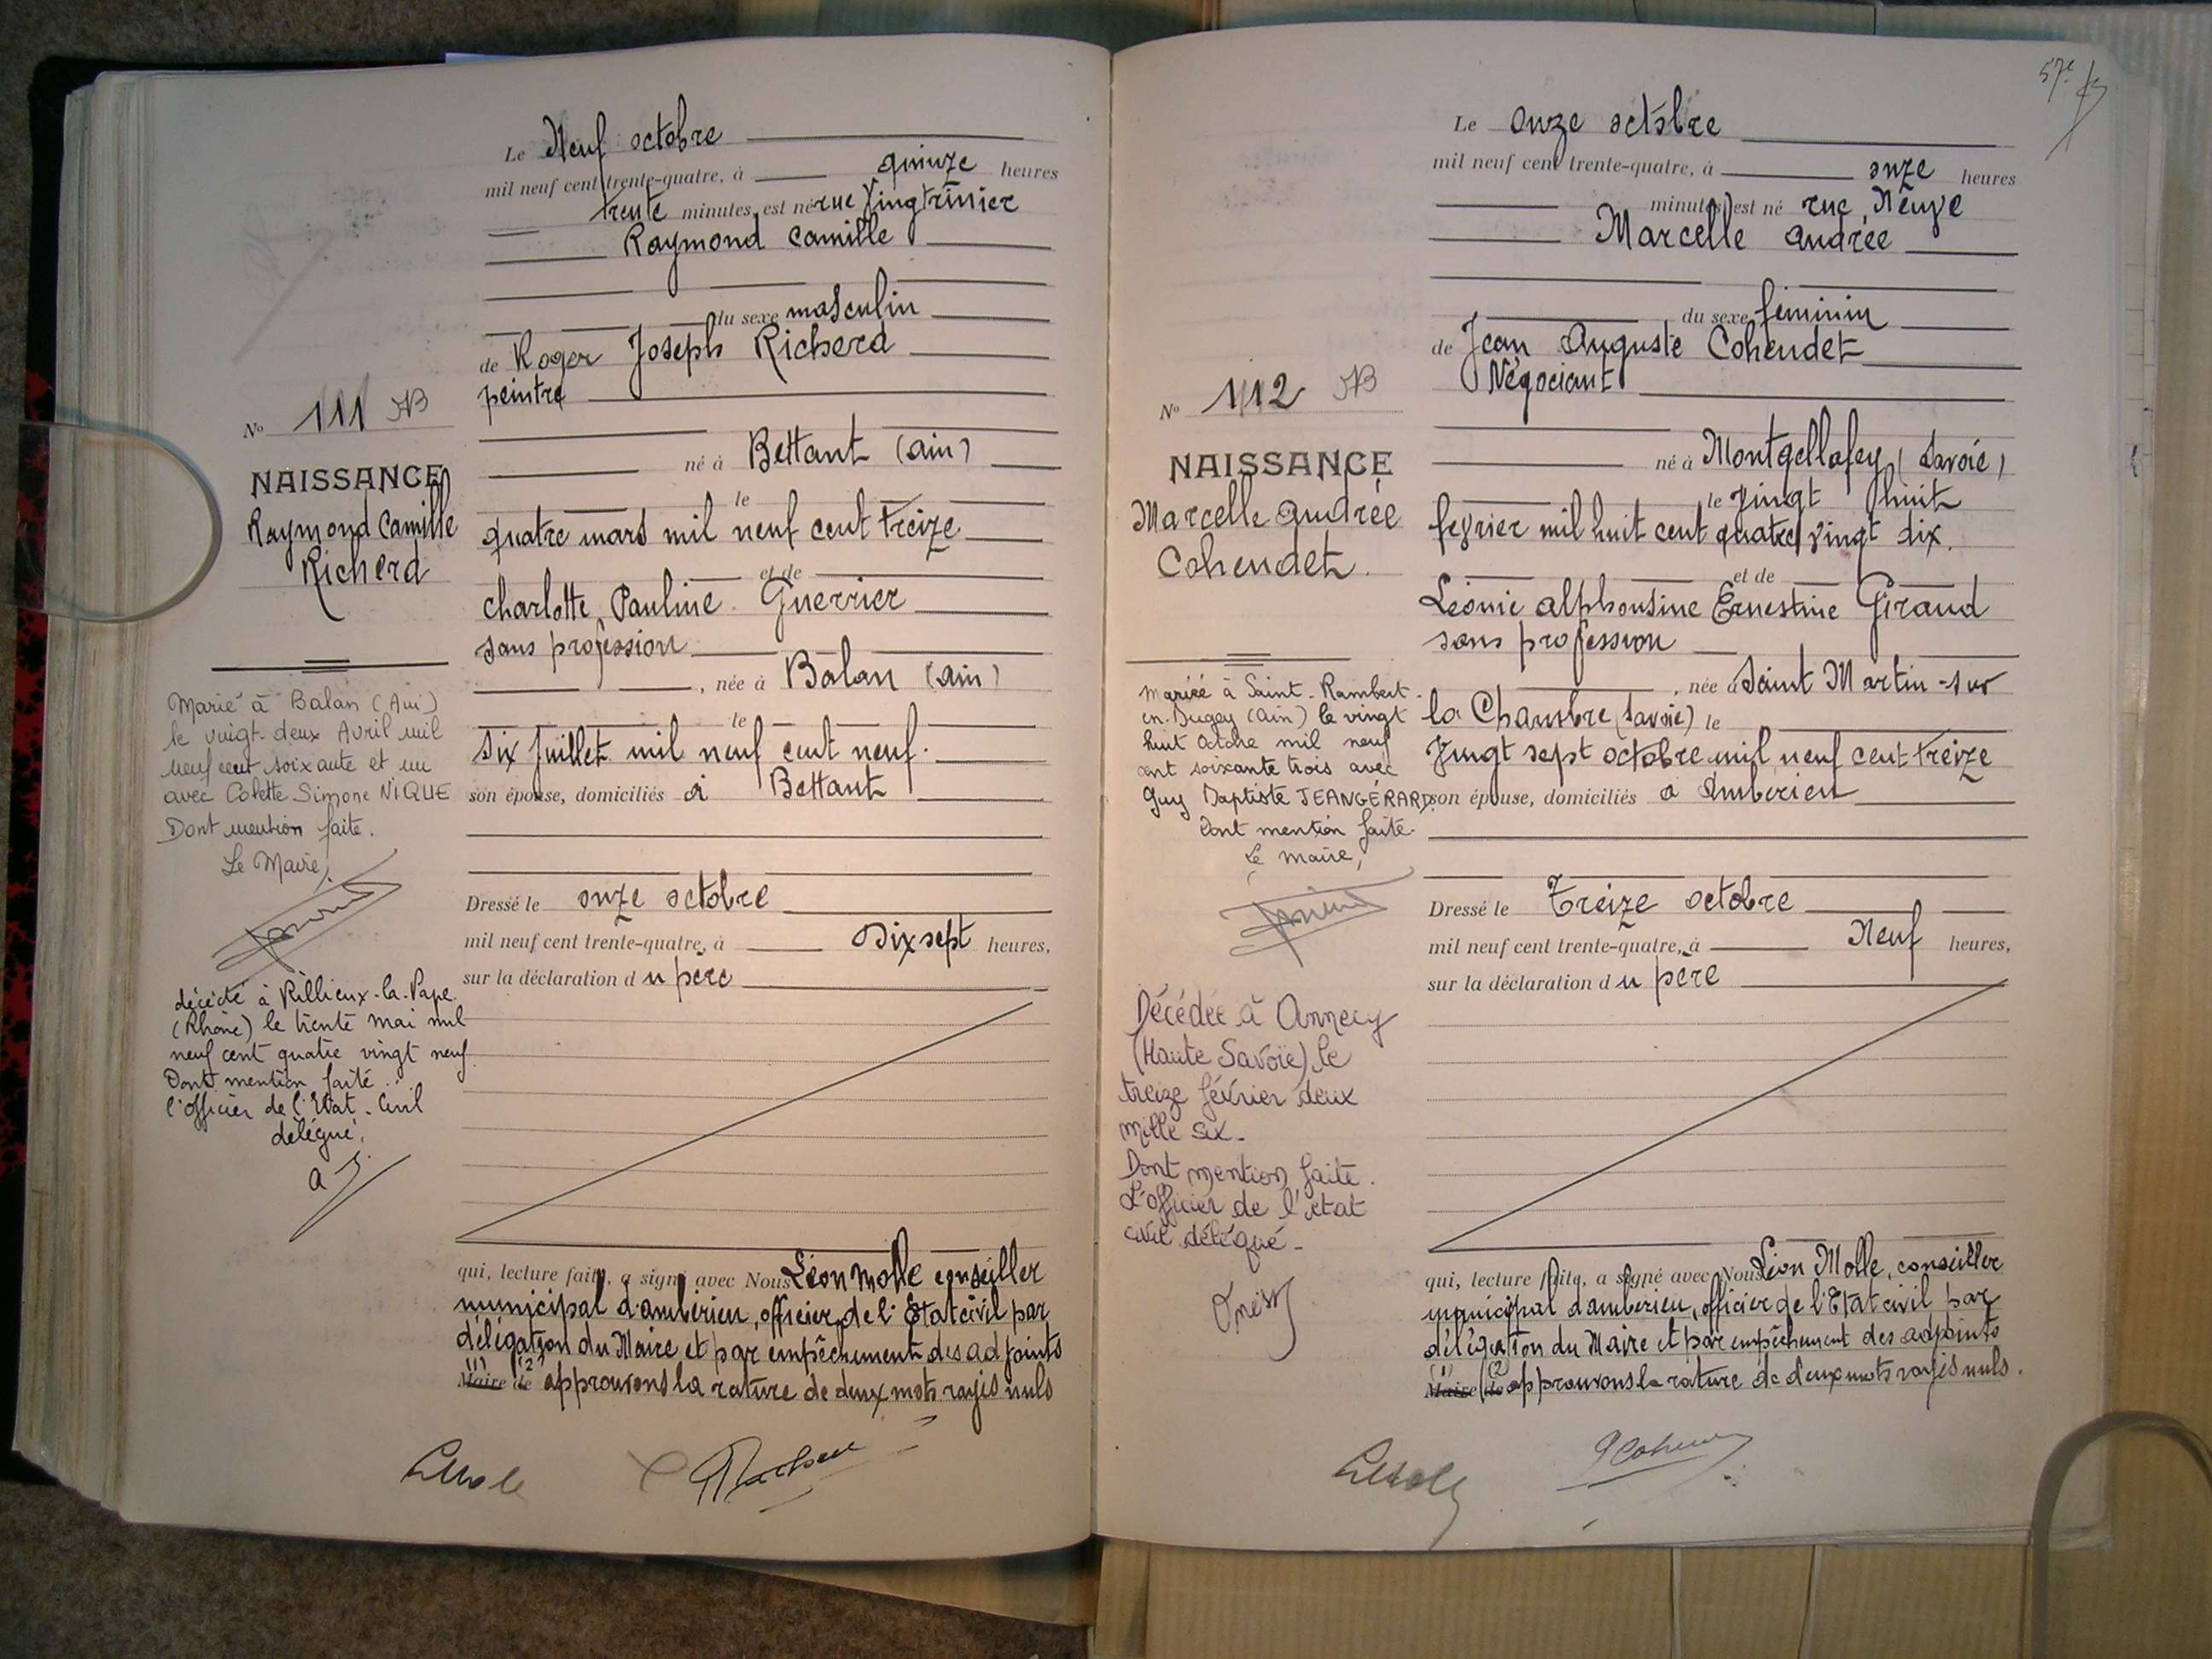 Le Neuf octobre
mil neuf cent trente-quatre, à quinze heures
trente minutes, est né rue Vingtrinier
Raymond Camille
du sexe masculin
de Roger Joseph Richerd
peintre
né à Bettant (ain)
le
quatre mars mil neuf cent treize
et de
Charlotte, Pauline Guerrier
sans profession
, née à Balan (ain)
le
six juillet mil neuf cent neuf.
son épouse, domiciliés à Bettant
Dressé le onze octobre
mil neuf cent trente-quatre, à Dix sept heures,
sur la déclaration du père
qui, lecture faite, a signé avec Nous Léon Molle conseiller
municipal d'ambérieu, officier de l'Etat civil par
délégation du Maire et par empêchement des adjoints
(1) (2)
Maire de approuvons la rature de deux mots rayés nuls
No 111
NAISSANCE
Raymond Camille
Richerd
Marié à Balan (Ain)
le vingt-deux Avril mil
neuf cent soixante et un
avec Colette Simone NIQUE
Dont mention faite.
Le Maire,
décédé à Rillieux-la-Pape
(Rhône) le trente mai mil
neuf cent quatre vingt neuf
Dont mention faite
l'officier de l'Etat-Civil
délégué,
57e
Le onze octobre
mil neuf cent trente-quatre, à onze heures
minutes, est né rue Neuve
Marcelle Andrée
du sexe féminin
de Jean Auguste Cohendet
Négociant
né à Montgellafey (Savoie)
le vingt huit
février mil huit cent quatre vingt dix.
et de
Léonie alphonsine Ernestine Giraud
sans profession
, née à Saint Martin-sur
la Chambre (Savoie) le
Vingt sept octobre mil neuf cent treize
son épouse, domiciliés à Ambérieu
Dressé le Treize octobre
mil neuf cent trente-quatre, à Neuf heures,
sur la déclaration du père
qui, lecture faite, a signé avec Nous Léon Molle, conseiller
municipal d'ambérieu, officier de l'Etat civil par
délégation du Maire et par empêchement des adjoints
(1) (2)
Maire de approuvons la rature de deux mots rayés nuls.
No 112
NAISSANCE
Marcelle Andrée
Cohendet.
Mariée à Saint-Rambert-
en-Bugey (Ain) le vingt
huit Octobre mil neuf
cent soixante trois avec
Guy Baptiste JEANGÉRARD.
Dont mention faite.
Le maire,
Décédée à Annecy
(Haute Savoie) le
treize février deux
mille six.
Dont mention faite.
L'officier de l'état
civil délégué-